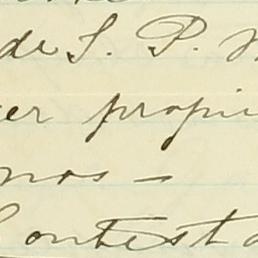 de S. P.
er propi
nos –
Contesta